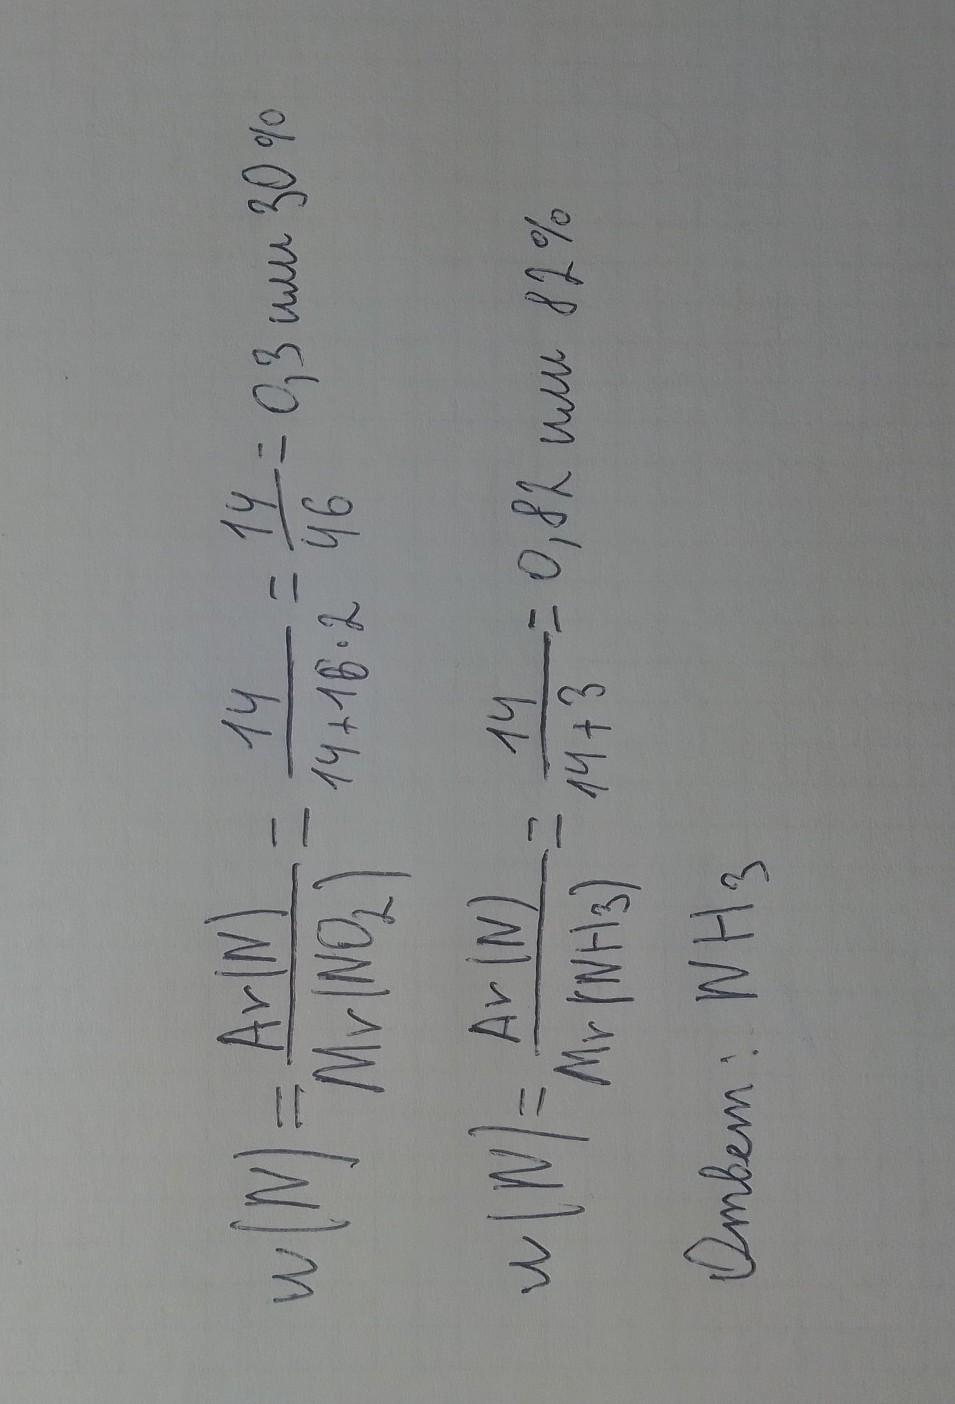 w(N) = Ar(N) / Mr(NO₂) = 14 / 14+16·2 = 14 / 46 = 0,3 или 30%
w(N) = Ar(N) / Mr(NH₃) = 14 / 14+3 = 0,82 или 82%
Ответ: NH₃